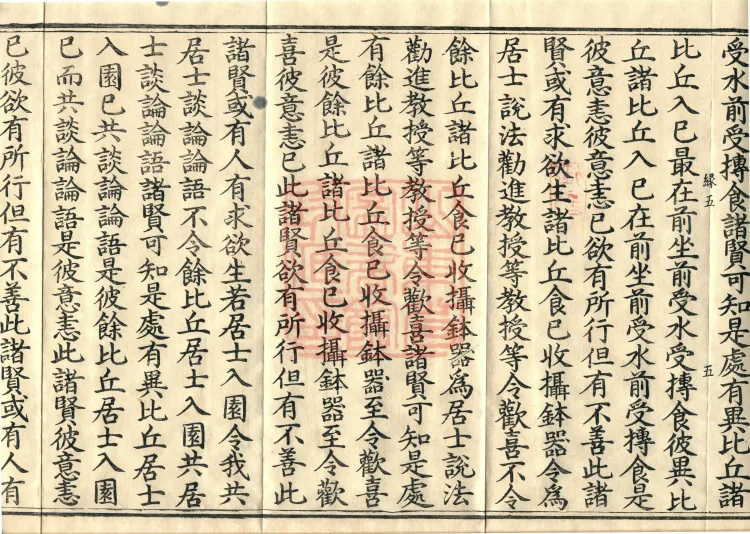 受水前受摶食諸賢可知是處有異比丘諸
比丘入已最在前坐前受水受摶食彼異比
丘諸比丘入已在前坐前受水前受摶食是
彼意恚彼意恚已欲有所行但有不善此諸
賢或有求欲生諸比丘食已收攝鉢器令為
居士說法勸進教授等教授等令歡喜不令
餘比丘諸比丘食已收攝鉢器為居士說法
勸進教授等教授等令歡喜諸賢可知是處
有餘比丘諸比丘食已收攝鉢器至令歡喜
是彼餘比丘諸比丘食已收攝鉢器至令歡
喜彼意恚已此諸賢欲有所行但有不善此
諸賢或有人有求欲生若居士入園令我共
居士談論論語不令餘比丘居士入園共居
士談論論語諸賢可知是處有異比丘居士
入園已共談論論語是彼餘比丘居士入園
已而共談論論語是彼意恚此諸賢彼意恚
已彼欲有所行但有不善此諸賢或有人有
緣五
五